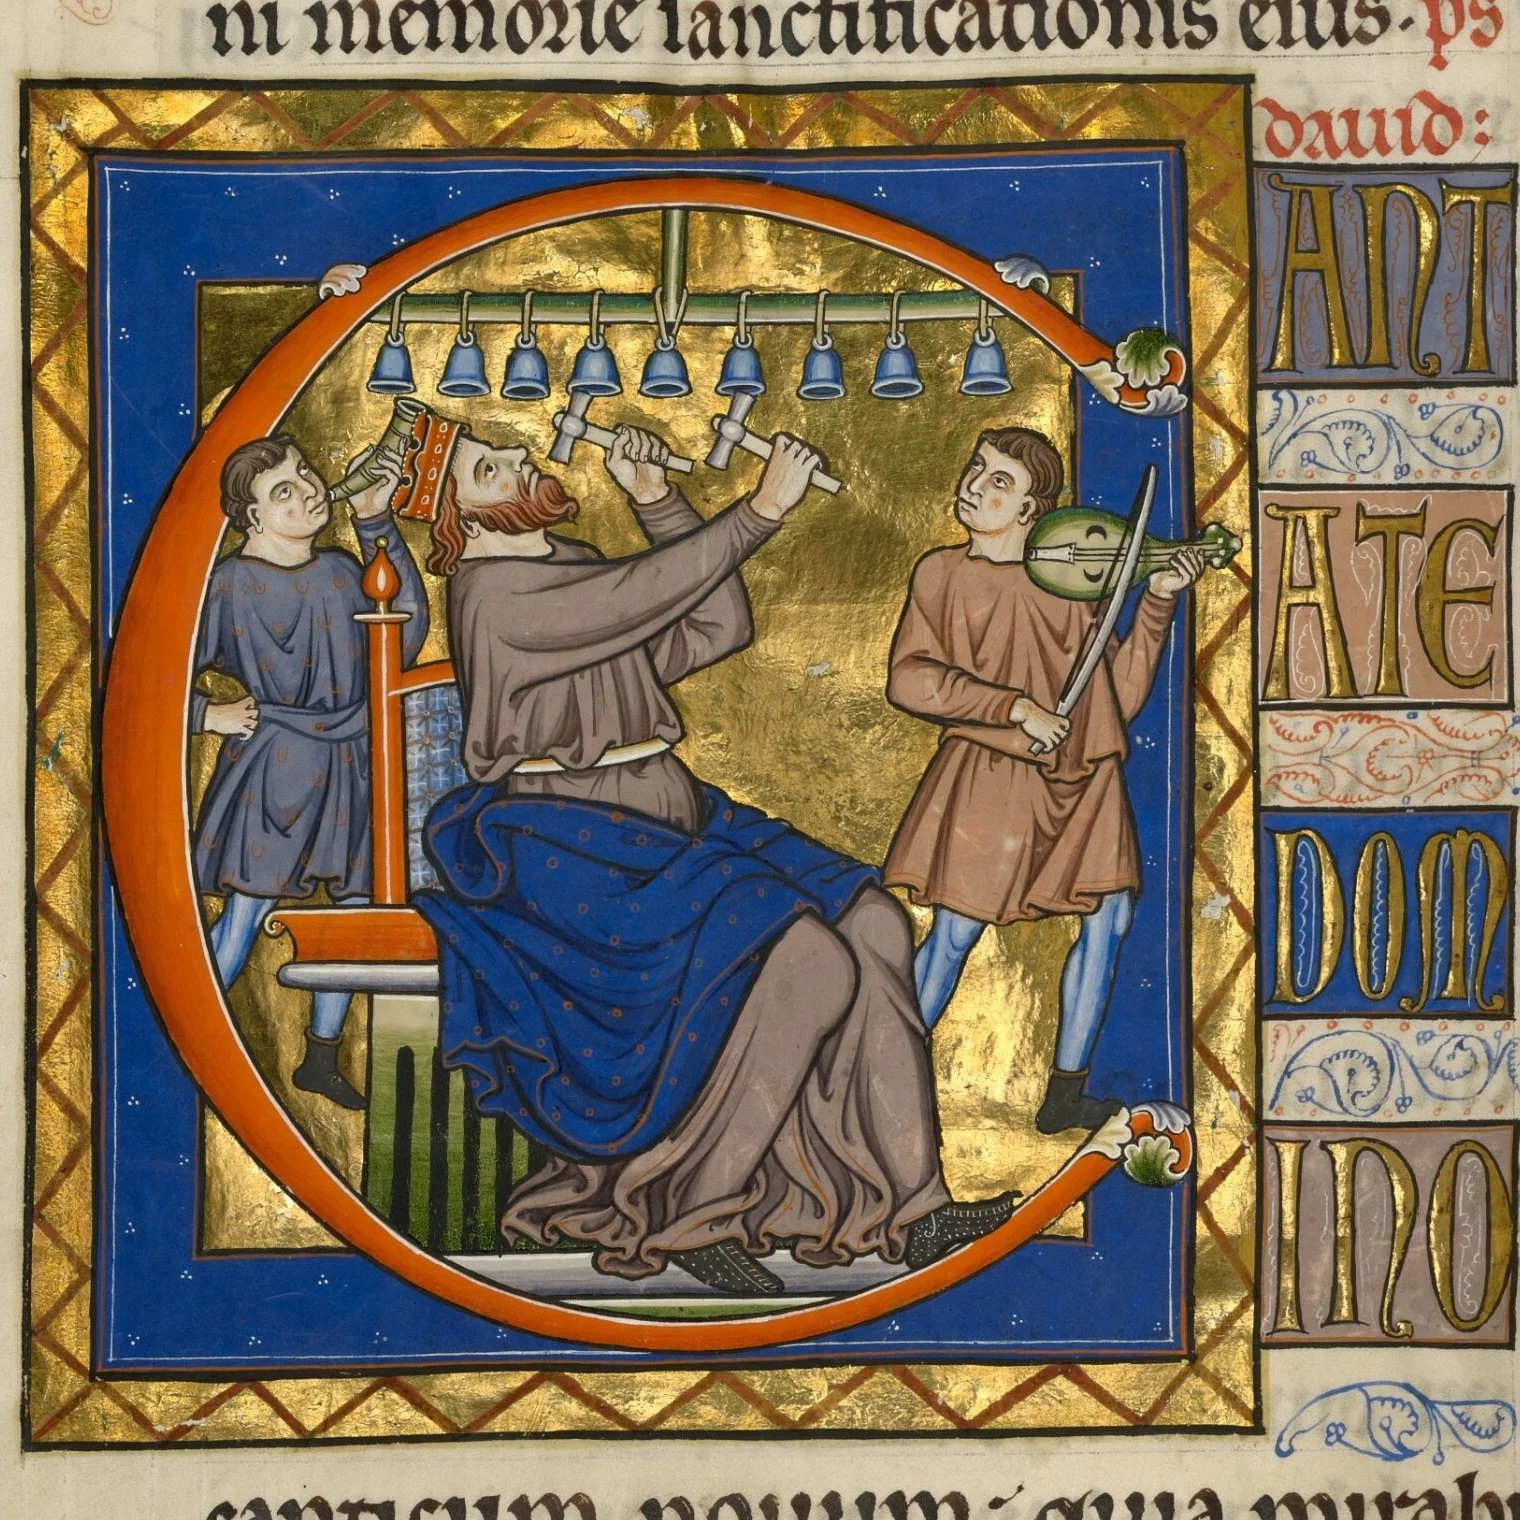 ni memorie sanctificationis eius. ps
dauid:
C
ANT
ATE
DOM
INO
canticum nouum: quia mirabi